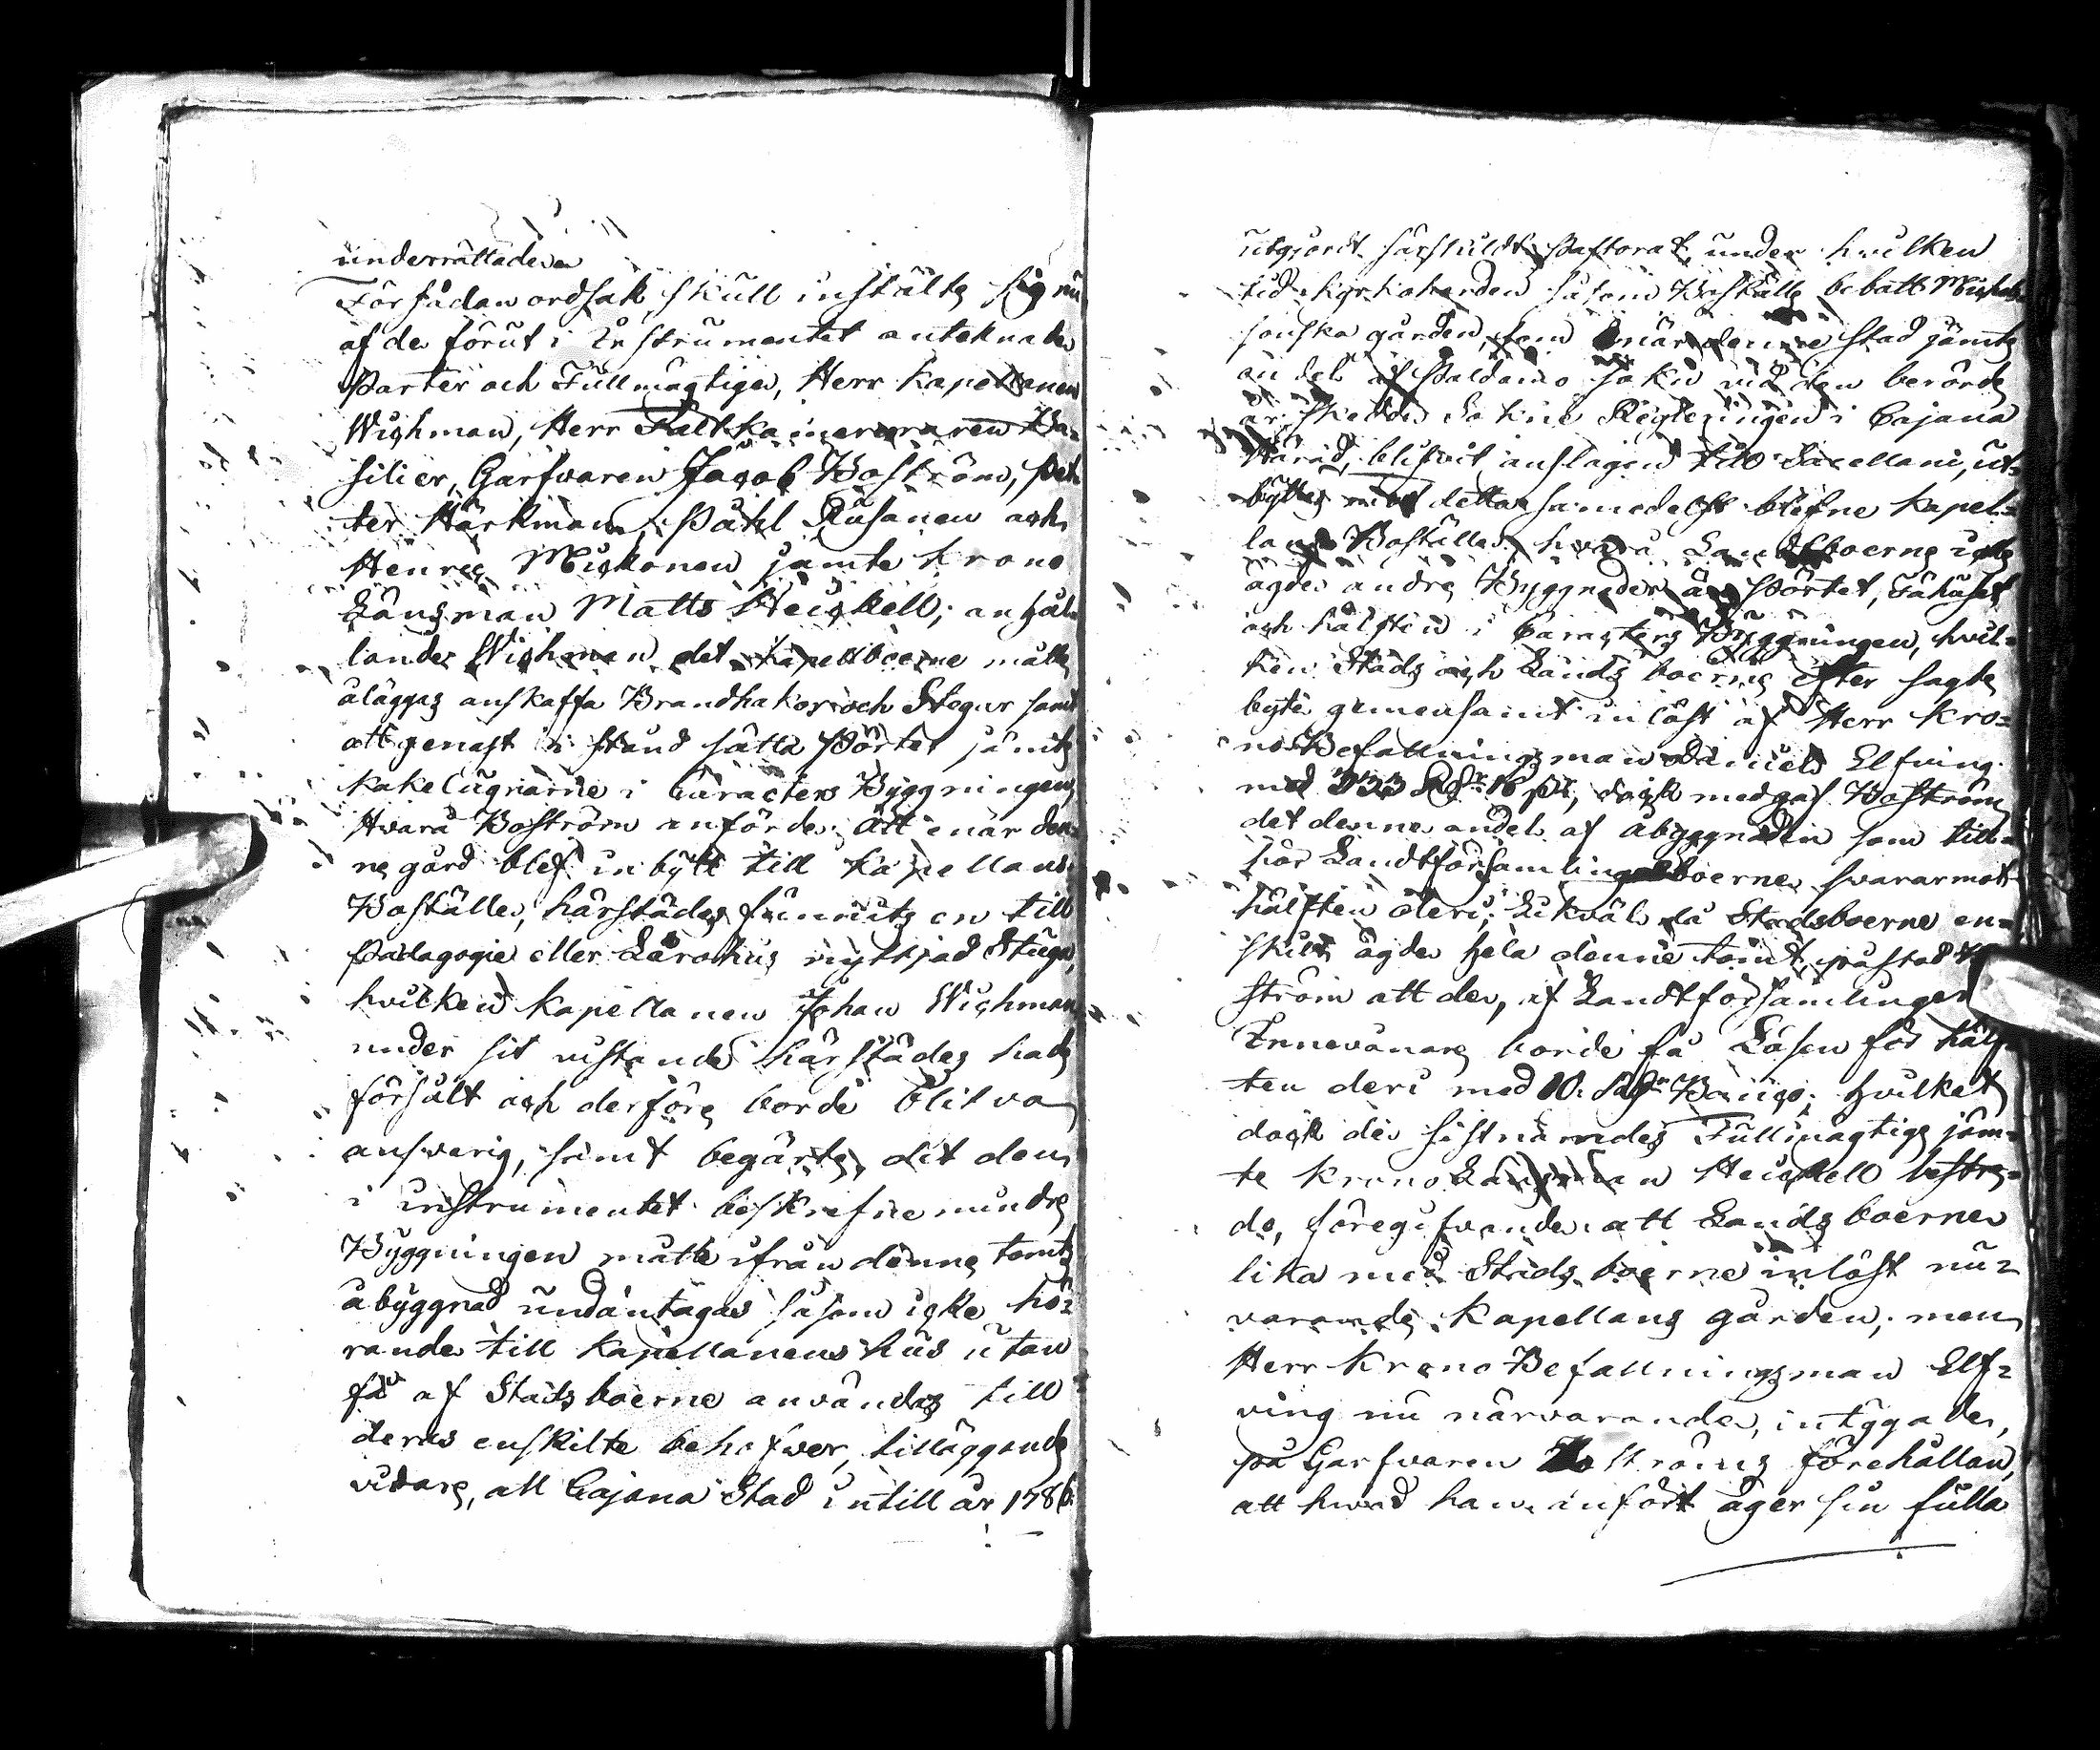 underrättade
För sådan ordsak, skull instälte sig nu
af de förut i Instrumentet anteknade
Parter och Fullmägtige, Herr Kapellanen
Wichman, Herr Fältkamereraren Ba-
silier, Garfvaren Jacob Boström, Pet-
ter Härkman, Påhl Kusanen och
Henric Mickonen jämte Krono
Länsman Matts Heickell; anhål-
lande Wichman det Kapellboerne måtte
åläggas anskaffa Brandhakor och Stegar samt
att genast i stånd sätta Pörtet jämte
Kakelugnarne i Caracters Byggningen,
Hvarå Boström anförde: Att enär den-
ne gård blef inbytt till Kapellans
Boställe, härstädes funnits en till
Pædagogie eller Lärohus nyttjad Stuga,
hvilken Kapellanen Johan Wichman
under sit vistande härstädes hade
försålt och derföre borde blifva
answarig, samt begärte, det den
i Instrumentet beskrefne mindre
Byggningen måtte ifrån denne tomts
åbyggnad undantagas såsom icke hö-
rande till Kapellanens hus utan
få af Stadsboerne användas till
deras enskilte behofwer, tilläggande
vidare, att Cajana Stad intill år 1786
utgjordt särskildt Pastorat, under hvilken
tid Kyrkoherden såsom Boställe bebott Mickel-
sonska gården, som enär denne Stad jämte
en del af Paldamo Sokn vid den berörde
år skedde Sokne Regleringen i Cajana
Härad, blifvit anslagen till Sacellani, ut-
byttes mot detta samedelst blefne Kapel-
lans Boställe, hvarå Landtboerne icke
ägde andre Byggnader än Pörtet, Fähuset
och hälften i Caracters Byggningen, hvil-
ken Stads och Landsboerne efter sagde
byte gemensamt inlöst af Herr Kro-
no Befallningsman Daniel Elfving
med 333 Rdr 16 s, dock medgaf Boström
det denne andel af åbyggnaden som till-
hör Landtförsamlingsboerne svarar mot
hälften deri; Likväl då Stadsboerne en-
skilt ägde hela denne tomt, påstod Bo-
ström att de, af Landtförsamlingens
Innevånare borde få Lösen för hälf-
ten deri med 10 Rdr Banco; hvilket
dock de sistnämndes Fullmägtige jäm-
te Krono Länsman Heickell bestre-
do, föregifvande: att Landsboerne
lika med Stadsboerne inlöst nu-
varande Kapellans gården; men
Herr Krono Befallningsman Elf-
ving nu närvarande, intygade,
på Garfvaren Boströms förehållan,
att hwad han anfört äger sin fulla